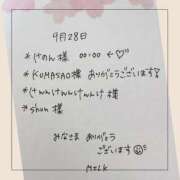 9月28日
*けのん様 00:00 ←♡"
*KUMASAO様 ありがとうございます!
*けんけんけんけ様
*shun様
みなさま ありがとう
ございます
MILK